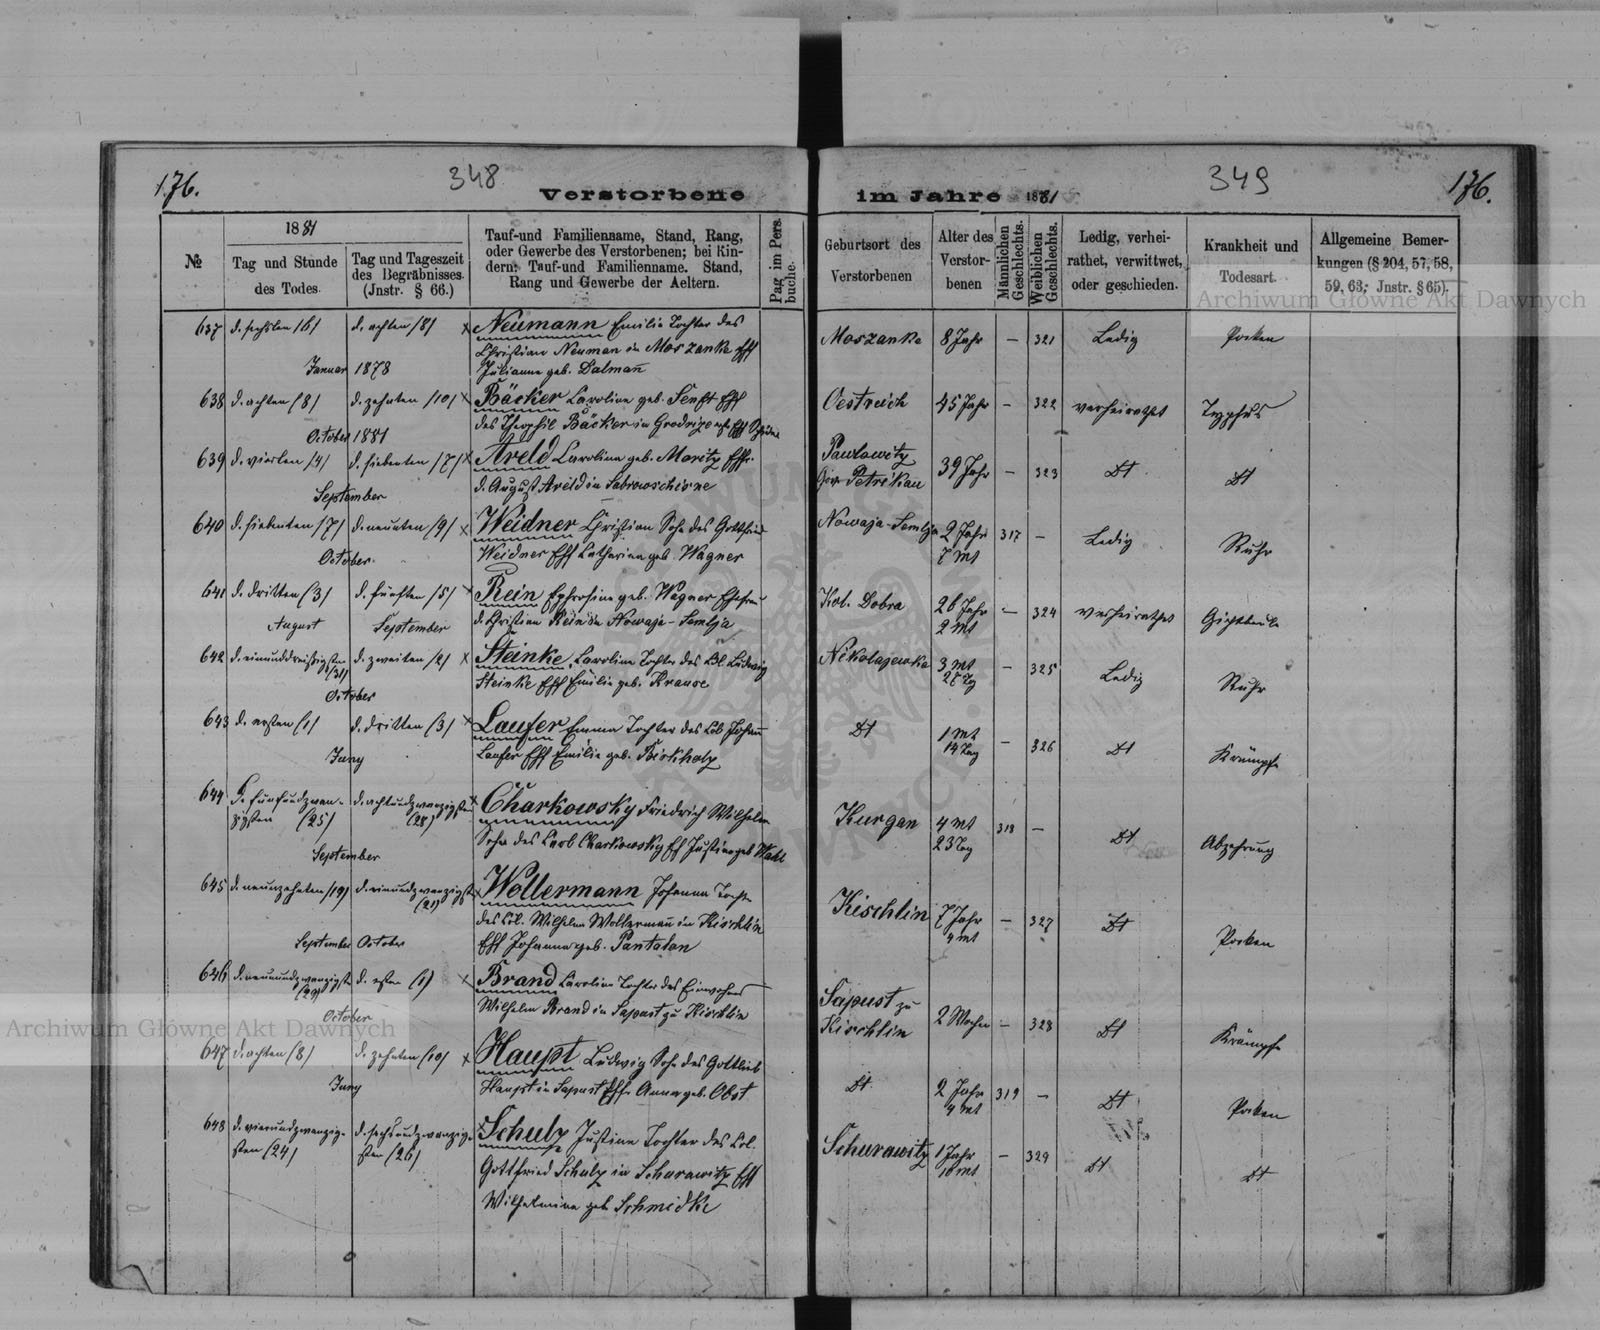 176.
348
Verstorbene
№
1881
Tag und Stunde
des Todes.
Tag und Tageszeit
des Begräbnisses.
(Jnstr. § 66.)
Tauf-und Familienname, Stand, Rang,
oder Gewerbe des Verstorbenen; bei Kin-
dern: Tauf-und Familienname. Stand,
Rang und Gewerbe der Aeltern.
Pag im Pers.
buche.
637 d. sechsten /6/ d. achten /8/ x Neumann Emilie Tochter des
Christian Neuman in Moszanke Eff
Januar 1878 Julianna geb. Dalmañ
638 d. achten /8/ d. zehnten /10/ x Bäcker Carolina geb. Senft Eff
des Theophil Bäcker in
October 1881
639 d. vierten /4/ d. siebenten /7/ x Areld Carolina geb. Moritz Effr.
September d. August Areld in
640 d. siebenten /7/ d. neunten /9/ x Weidner Christian Sohn des Gottfried
October. Weidner Eff Catharina geb. Wagner
641 d. dritten /3/ d. fünften /5/ x Rein Ephrosina geb. Wagner Ehefrau
August September d. Christian Rein in Nowaja-Semlja
642 d. einunddreißigsten /31/ d. zweiten /2/ x Steinke, Carolina Tochter des Col. Ludwig
October Steinke Eff Emilie geb. Krause
643 d. ersten /1/ d. dritten /3/ x Laufer Emma Tochter des Col Johañ
Juny Laufer Eff Emilie geb. Birkholz
644 d. fünfundzwan-
zigsten /25/ d. achtundzwanzigsten /28/ x Charkowsky Friedrich Wilhelm
September Sohn des Carl Charkowsky Eff Justina geb Wahl
645 d. neunzehnten /19/ d. einundzwanzigst /21/ x Wollermann Johanna Tocht.
des Col. Wilhelm Wollermañ in Kischlin
September October Eff Johanna geb. Pantalon
646 d. neunundzwanzigst /29/ d. ersten /1/ x Brand Carolina Tochter des Einwohners
October Wilhelm Brand in Sapust zu Kischlin
647 d. achten /8/ d. zehnten /10/ x Haupt Ludwig Sohn des Gottlieb
Juny Haupt in Sapust Effr. Anna geb. Obst
648 d. vierundzwanzig-
sten /24/ d. sechsundzwanzig-
sten /26/ x Schulz Justina Tochter des Col.
Gottfried Schulz in Schurawitz Eff
Wilhelmina geb Schmidke
im Jahre 1881
349
176.
Geburtsort des
Verstorbenen
Alter des
Verstor-
benen
Männlichen
Geschlechts.
Weiblichen
Geschlechts.
Ledig, verhei-
rathet, verwittwet,
oder geschieden.
Krankheit und
Todesart.
Allgemeine Bemer-
kungen (§ 204, 57, 58,
59, 63; Jnstr. § 65).
Moszanke 8 Jahr — 321 Ledig Pocken
Oestreich 45 Jahr — 322 verheirathet Typhus
Pawlowitz
Gov. Petrikau 39 Jahr — 323 Dt Dt
Nowaja-Semlja 2 Jahr
7 Mt 317 — Ledig Ruhr
Kol. Dobra 26 Jahr
2 Mt — 324 verheirathet
Nikolajewka 3 Mt
27 Tag — 325 Ledig Ruhr
Dt 1 Mt
14 Tag — 326 Dt Krämpfe
Kurgan 4 Mt
23 Tag 318 — Dt Abzehrung
Kischlin 7 Jahr
4 Mt — 327 Dt Pocken
Sapust zu
Kischlin 2 Wochen — 328 Dt Krämpfe
Dt 2 Jahr
4 Mt 319 — Dt Pocken
Schurawitz 1 Jahr
10 Mt — 329 Dt Dt
Archiwum Główne Akt Dawnych
Archiwum Główne Akt Dawnych